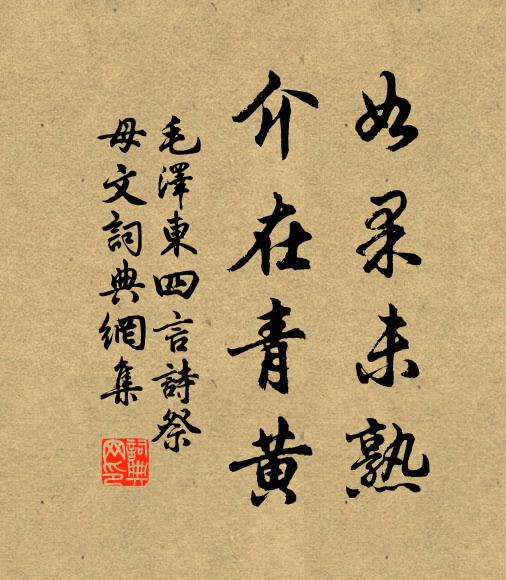 如果未熟
介在青黄
毛澤東四言詩祭
母文詞典網集
詞典
网印